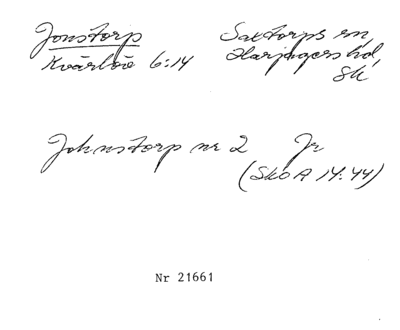 Jonstorp
Saxtorps sn,
Kvärlöv 6:14
Harjagers hd,
Sk
Johnstorp nr 2 Jr
(SkO A 14:44)
Nr 21661